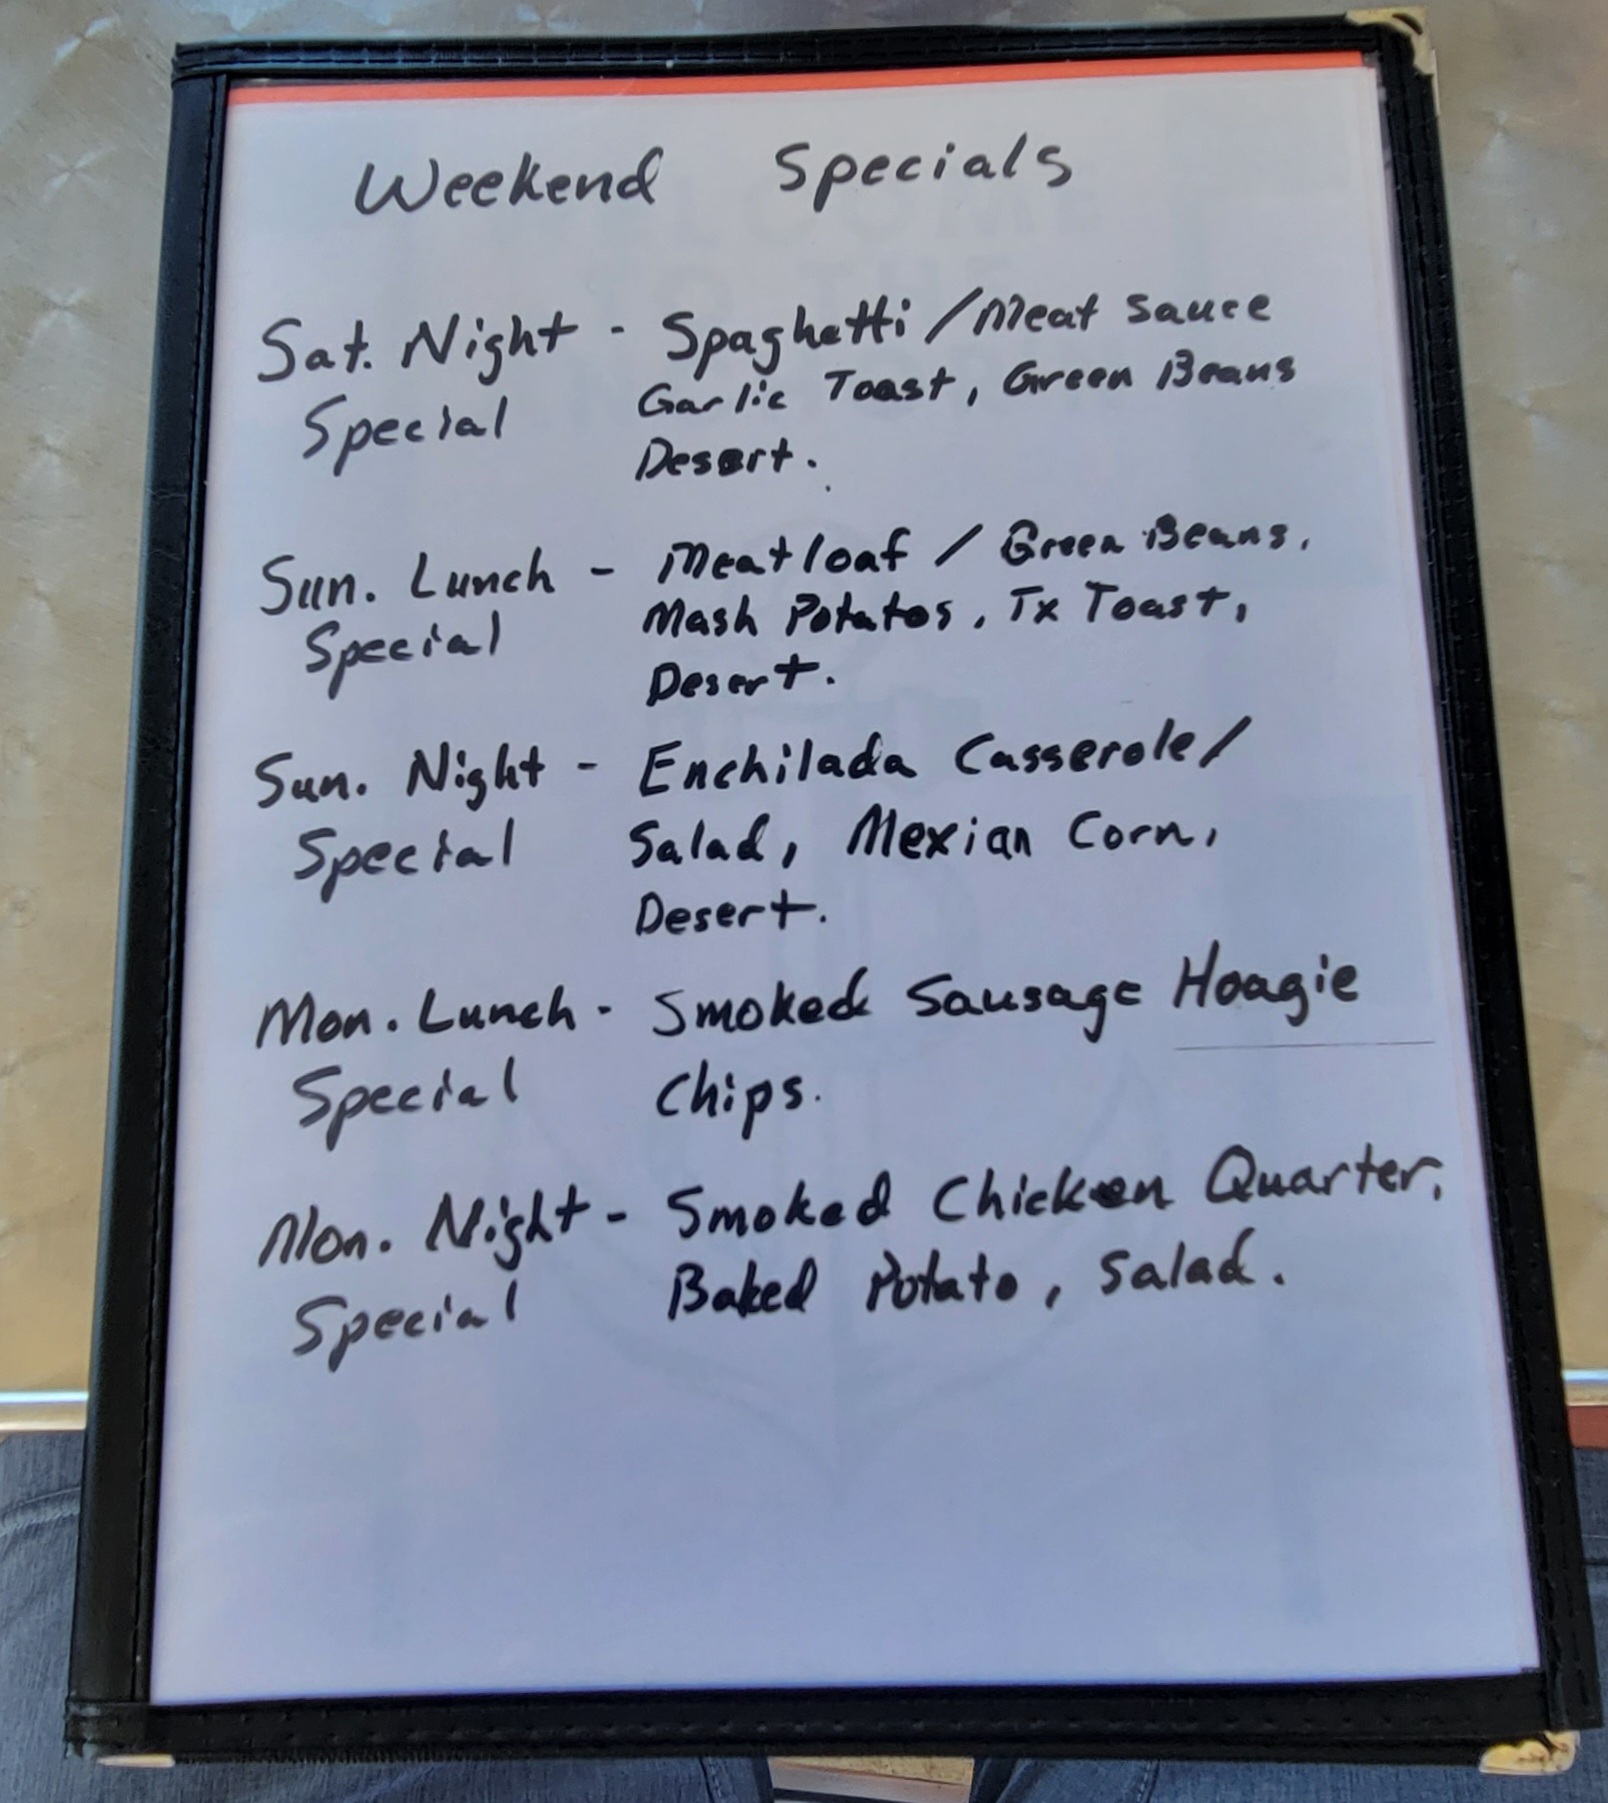 Weekend Specials
Sat. Night - Spaghetti / Meat Sauce
Special Garlic Toast, Green Beans
Desert.
Sun. Lunch - Meatloaf / Green Beans,
Special Mash Potatos, Tx Toast,
Desert.
Sun. Night - Enchilada Casserole /
Special Salad, Mexian Corn,
Desert.
Mon. Lunch - Smoked Sausage Hoagie
Special Chips.
Mon. Night - Smoked Chicken Quarter,
Special Baked Potato, Salad.